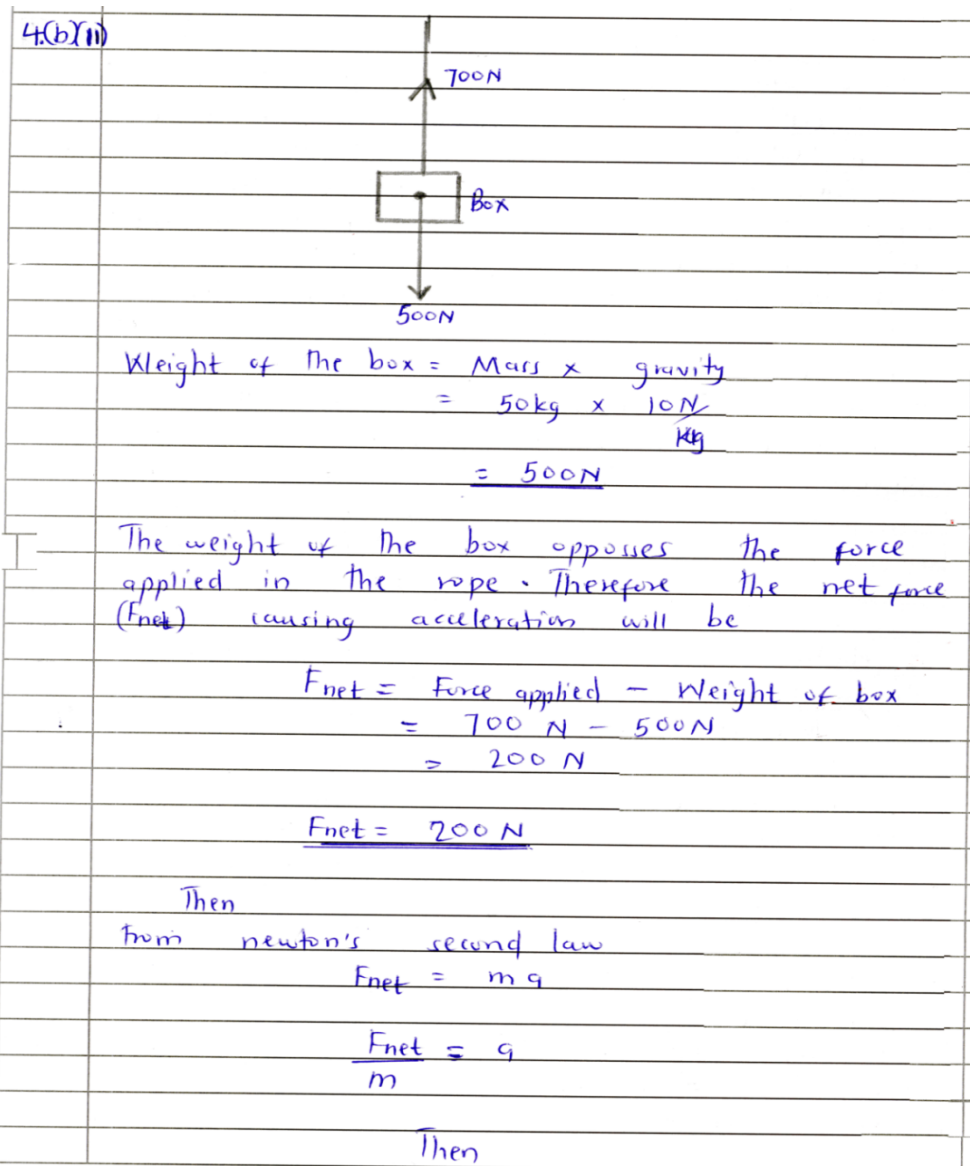 4.(b)(ii)
700N
Box
500N
Weight of the box = Mass x gravity
= 50kg x 10N/kg
= 500N
The weight of the box opposses the force
applied in the rope. Therefore the net force
(Fnet) causing acceleration will be
Fnet = Force applied - Weight of box
= 700 N - 500N
= 200 N
Fnet = 200 N
Then
From newton's second law
Fnet = ma
Fnet/m = a
Then